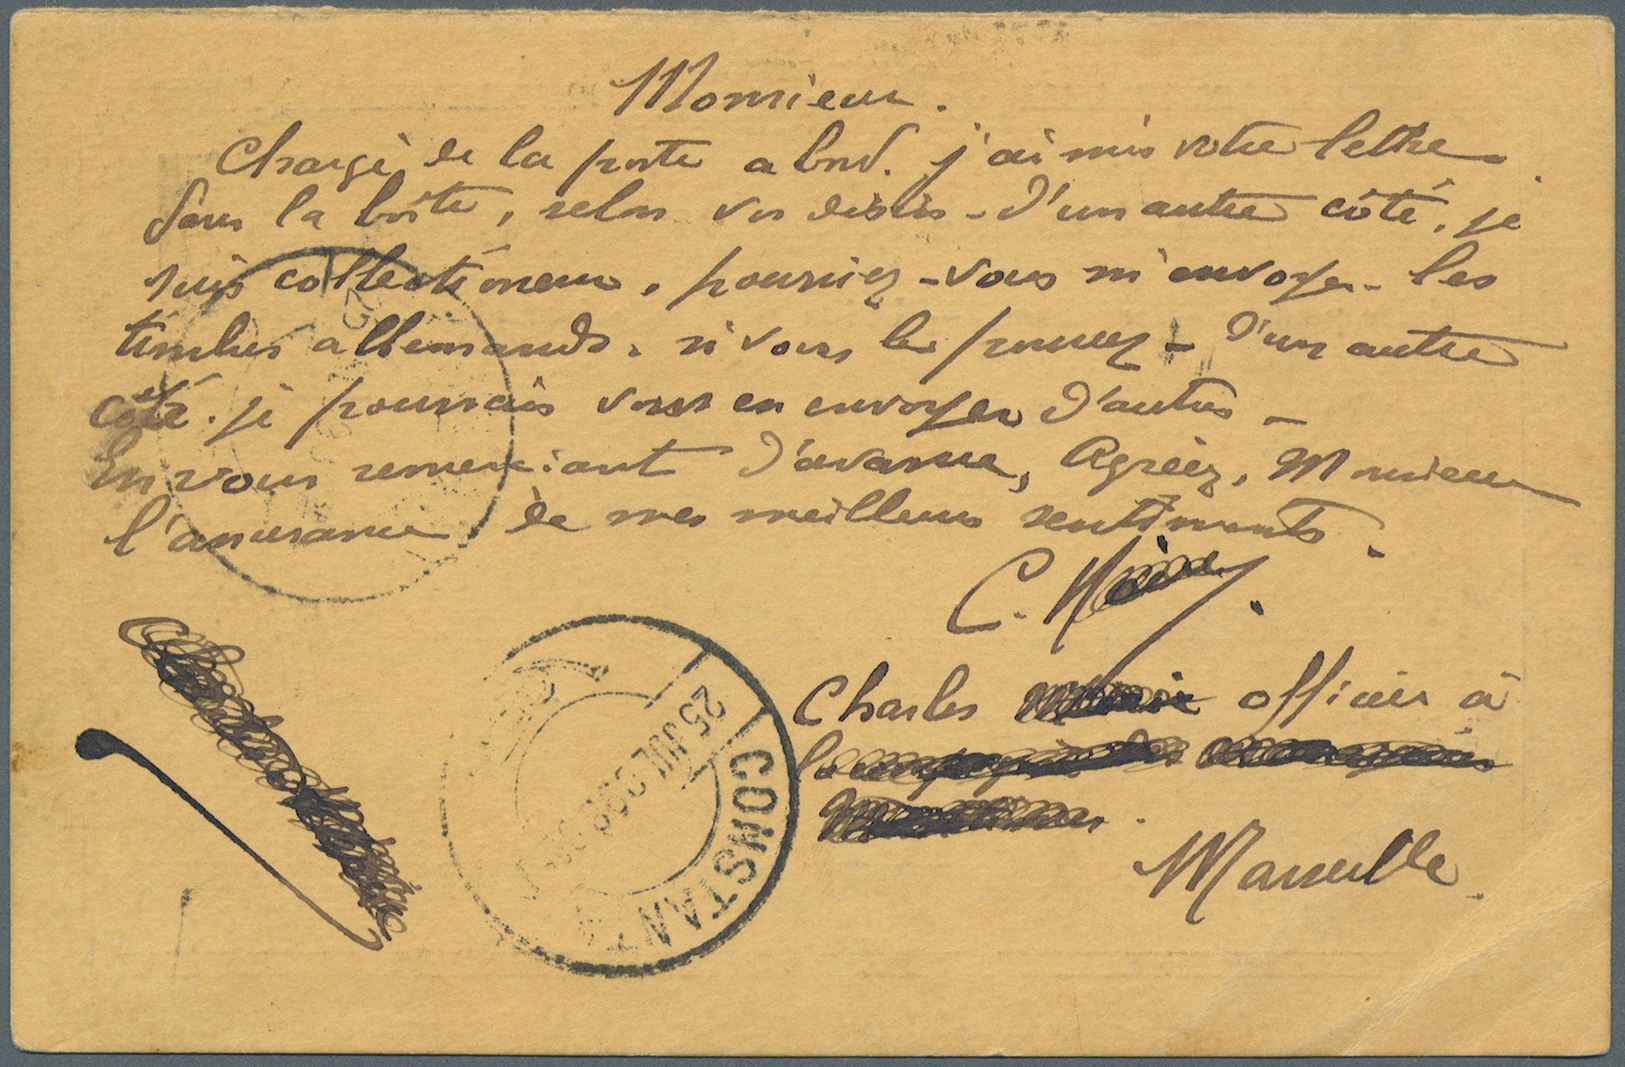 Monsieur.
Chargé de la poste a bord. j'ai mis votre lettre
dans la boîte, selon vos désirs - D'un autre côté, je
suis collectionneur, pourriez-vous m'envoyer les
timbres allemands, si vous le pouvez - D'un autre
côté. je pourrais vous en envoyer d'autres -
En vous remerciant d'avance, Agréez, Monsieur
l'assurance de mes meilleurs sentiments.
C.
Charles officier à
Marseille.
CONSTANT
25 JUIL